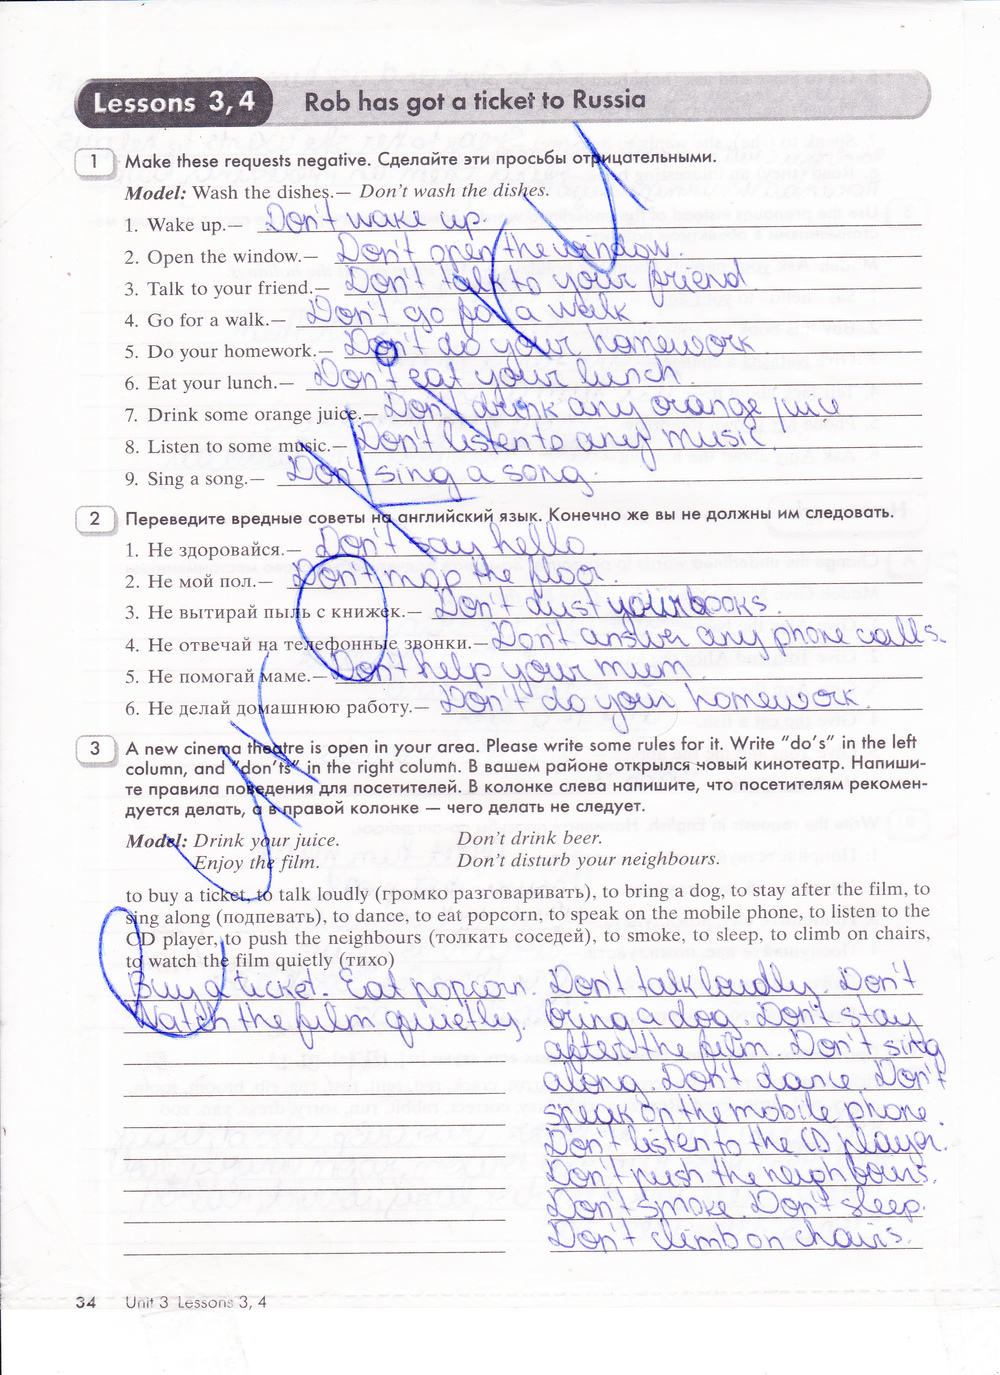 Lessons 3, 4 Rob has got a ticket to Russia
1 Make these requests negative. Сделайте эти просьбы отрицательными.
Model: Wash the dishes.— Don't wash the dishes.
1. Wake up.— Don't wake up.
2. Open the window.— Don't open the window.
3. Talk to your friend.— Don't talk to your friend
4. Go for a walk.— Don't go for a walk
5. Do your homework.— Don't do your homework
6. Eat your lunch.— Don't eat your lunch.
7. Drink some orange juice.— Don't drink any orange juice
8. Listen to some music.— Don't listen to any music.
9. Sing a song.— Don't sing a song.
2 Переведите вредные советы на английский язык. Конечно же вы не должны им следовать.
1. Не здоровайся.— Don't say hello.
2. Не мой пол.— Don't mop the floor.
3. Не вытирай пыль с книжек.— Don't dust your books.
4. Не отвечай на телефонные звонки.— Don't answer any phone calls.
5. Не помогай маме.— Don't help your mum.
6. Не делай домашнюю работу.— Don't do your homework.
3 A new cinema theatre is open in your area. Please write some rules for it. Write "do's" in the left
column, and "don'ts" in the right column. В вашем районе открылся новый кинотеатр. Напиши-
те правила поведения для посетителей. В колонке слева напишите, что посетителям рекомен-
дуется делать, а в правой колонке — чего делать не следует.
Model: Drink your juice. Don't drink beer.
Enjoy the film. Don't disturb your neighbours.
to buy a ticket, to talk loudly (громко разговаривать), to bring a dog, to stay after the film, to
sing along (подпевать), to dance, to eat popcorn, to speak on the mobile phone, to listen to the
CD player, to push the neighbours (толкать соседей), to smoke, to sleep, to climb on chairs,
to watch the film quietly (тихо)
Buy a ticket. Eat popcorn.
Watch the film quietly.
Don't talk loudly. Don't
bring a dog. Don't stay
after the film. Don't sing
along. Don't dance. Don't
speak on the mobile phone.
Don't listen to the CD player.
Don't push the neighbours.
Don't smoke. Don't sleep.
Don't climb on chairs.
34 Unit 3 Lessons 3, 4